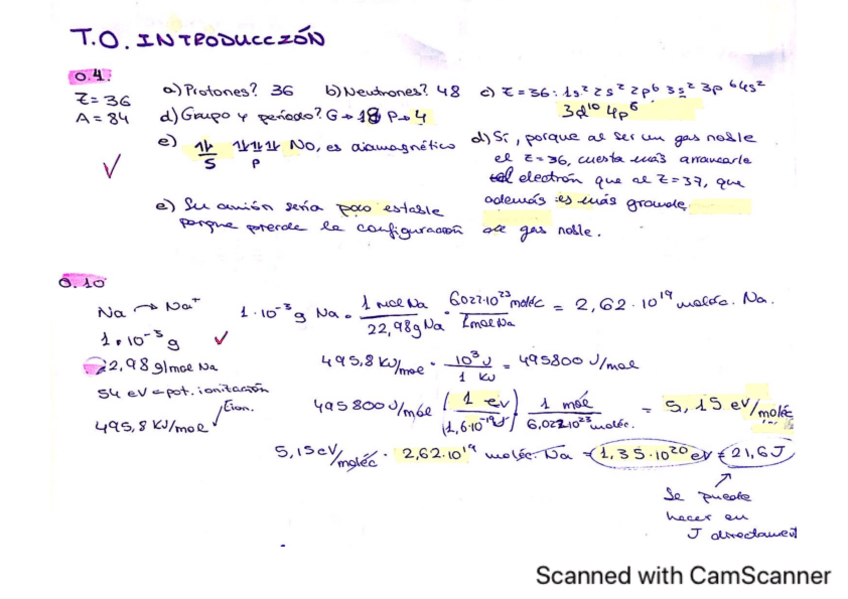 T.O. INTRODUCCIÓN
0.4.
Z=36
A=84
a) Protones? 36 b) Neutrones? 48 c) Z=36: 1s² 2s² 2p⁶ 3s² 3p⁶ 4s²
3d¹⁰ 4p⁶
d) Grupo y período? G→18 P→4
e) ⥮ ⥮⥮⥮ No, es diamagnético
S P
d) Sí, porque al ser un gas noble
el Z=36, cuesta más arrancarle
el electrón que al Z=37, que
además es más grande
e) Su anión sería poco estable
porque pierde la configuración de gas noble.
0.10
Na → Na⁺
1·10⁻³ g
22,98 g/mol Na
54 eV = pot. ionitación
Eion.
495,8 KJ/mol
1·10⁻³ g Na · 1 mol Na / 22,98g Na · 6022·10²³ moléc / 1 mol Na = 2,62·10¹⁹ moléc. Na.
495,8 KJ/mol · 10³ J / 1 KJ = 495800 J/mol
495800 J/mol (1 eV / 1,6·10⁻¹⁹J) 1 mol / 6,022·10²³ moléc. = 5,15 eV/moléc
5,15 eV/moléc · 2,62·10¹⁹ moléc. Na = 1,35·10²⁰ eV = 21,6 J
Se puede
hacer en
J directament
Scanned with CamScanner